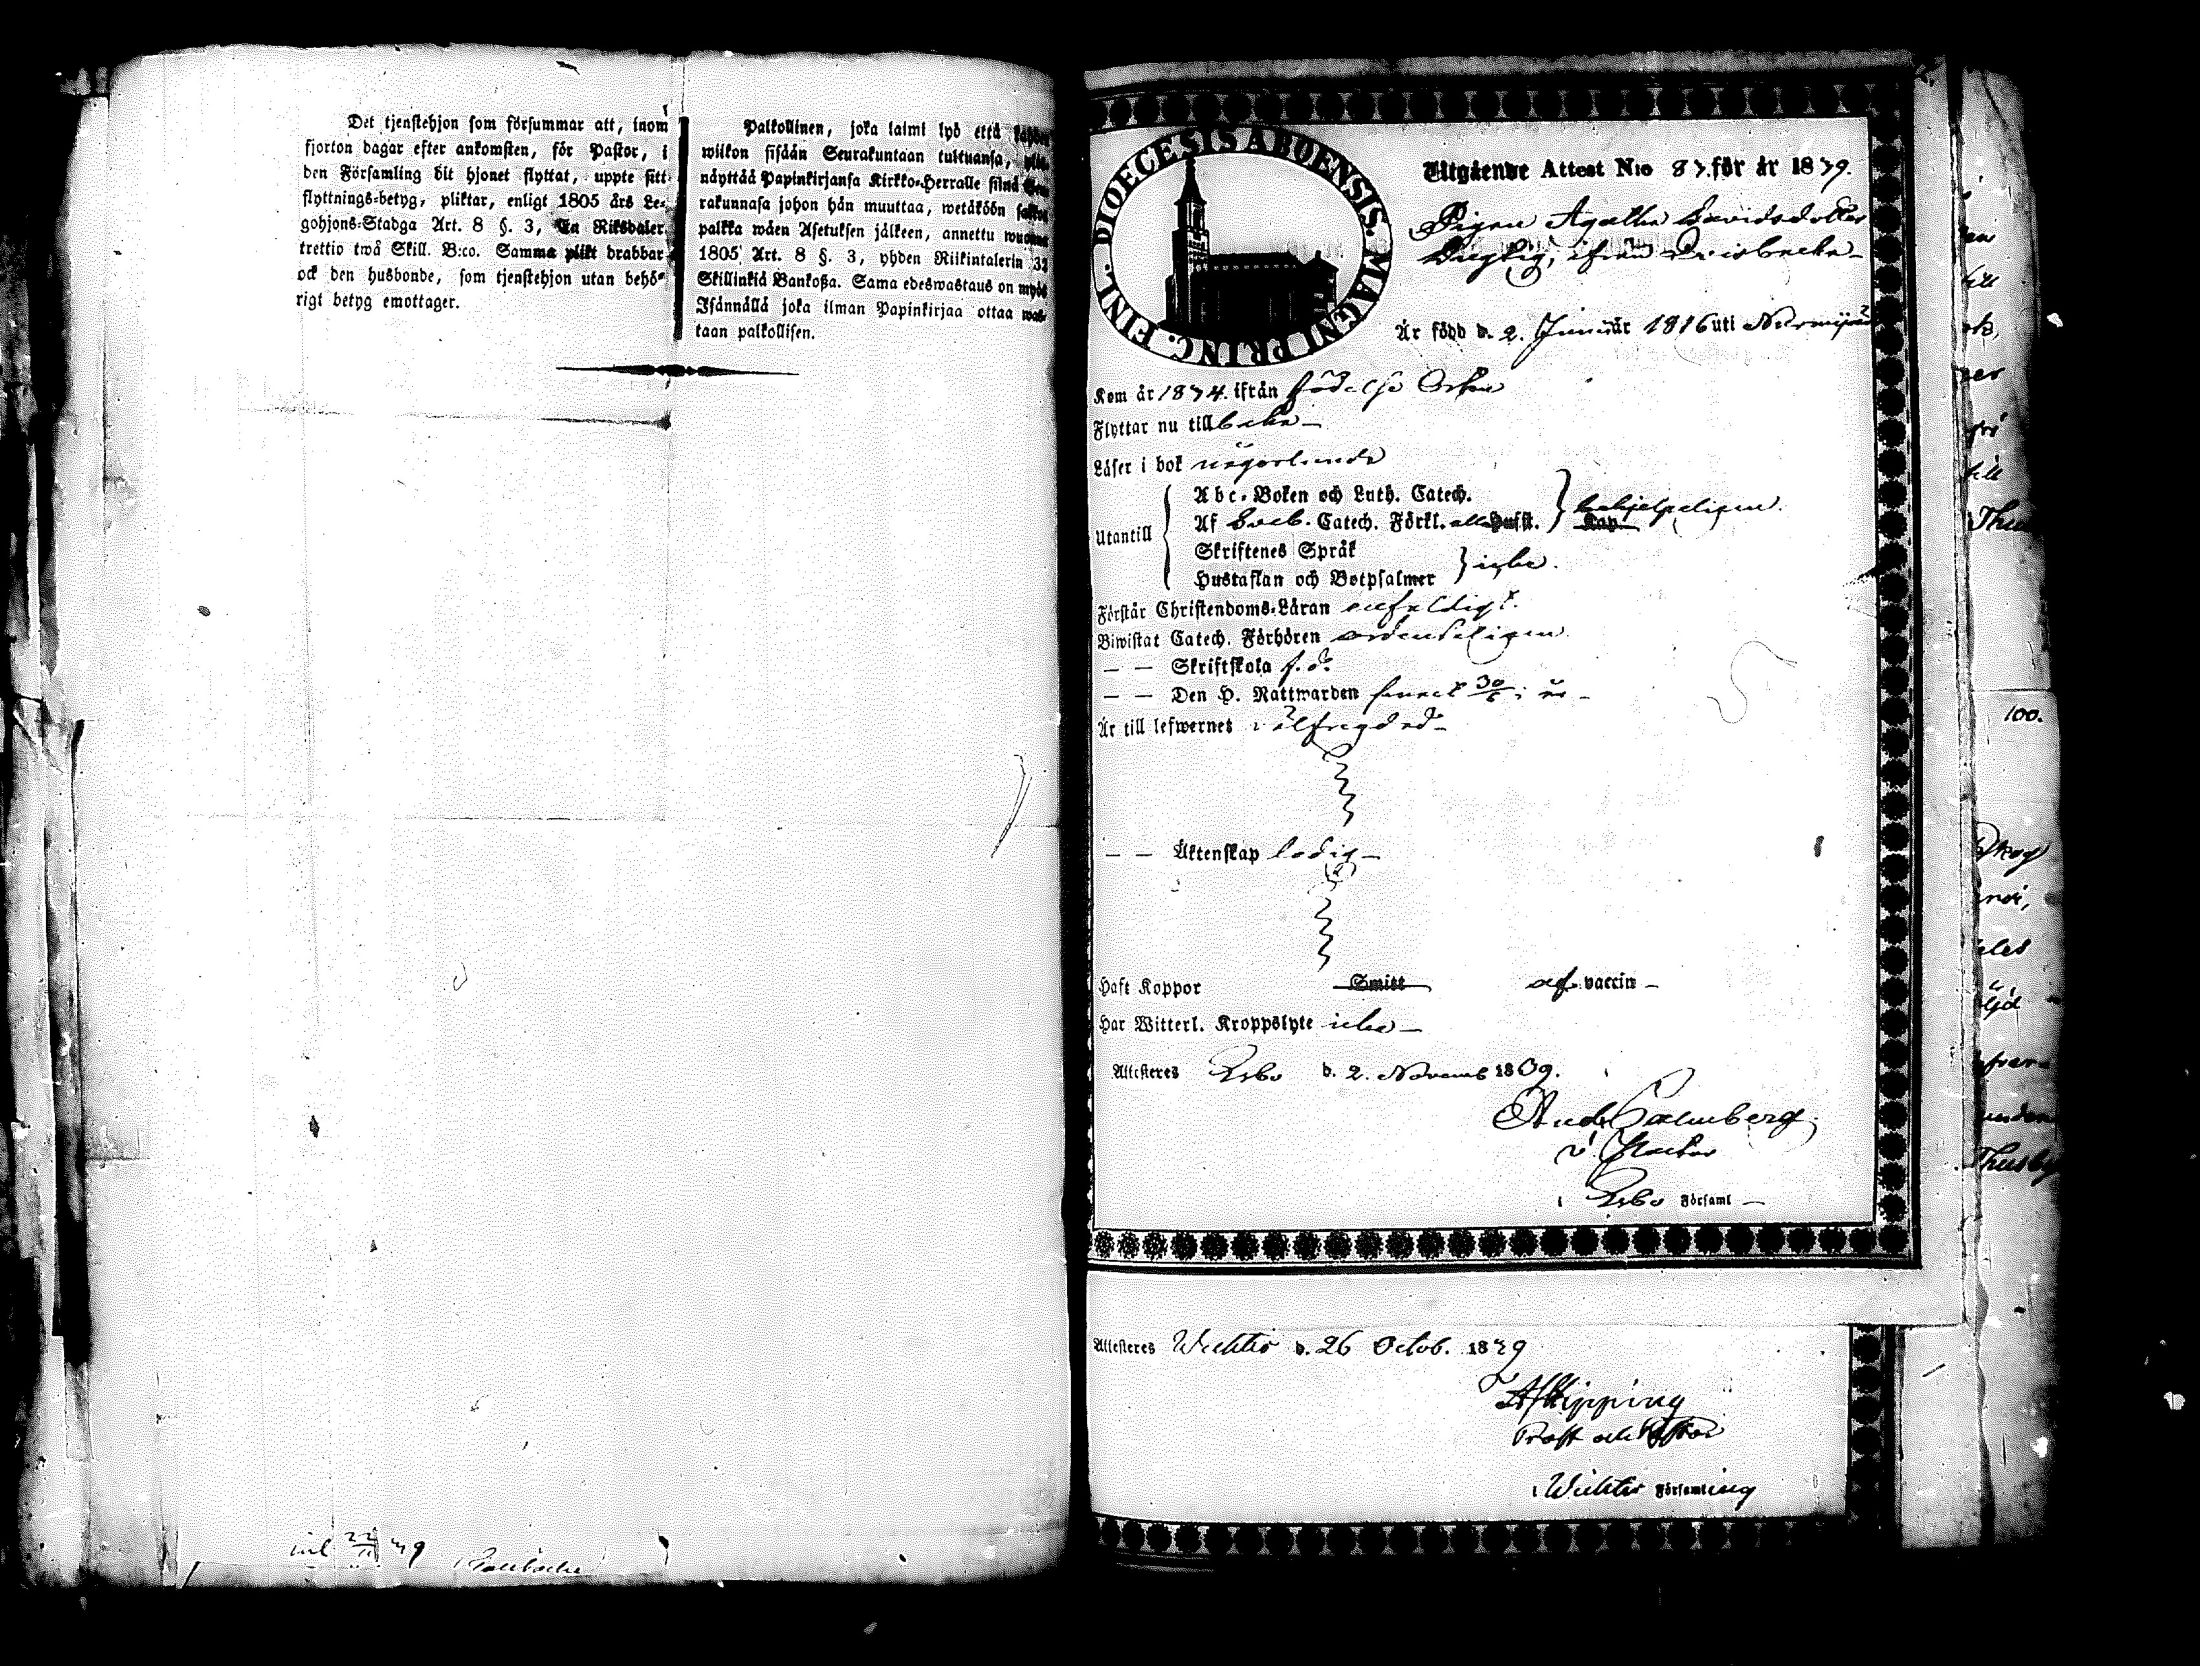 Det tjenstehjon som försummar att, inom
fjorton dagar efter ankomsten, för Pastor, i
den Församling dit hjonet flyttat, uppte sitt
flyttnings-betyg, pliktar, enligt 1805 års Le-
gohjons-Stadga Art. 8 §. 3, En Riksdaler
trettio twå Skill. B:co. Samma plikt drabbar
ock den husbonde, som tjenstehjon utan behö-
rigt betyg emottager.
Palkollinen, joka laimi lyö että
wiikon sisään Seurakuntaan tultuansa,
näyttää Papinkirjansa Kirkko-Herralle siinä Seu-
rakunnasa johon hän muuttaa, wetäköön sakkoa
palkka wäen Asetuksen jälkeen, annettu wuonna
1805 Art. 8 §. 3, yhden Riikintalerin 32
Skillinkiä Bankoßa. Sama edeswastaus on myös
Isännällä joka ilman Papinkirjaa ottaa was-
taan palkollisen.
DIOECESIS ABOENSIS. MAGNI PRINC. FINL.
Utgående Attest N:o 87. för år 1839.
Pigan Agatha Davidsdotter
Duglig, ifrån
Är född d. 2. Junii år 1816 uti Nurmijärvi
Kom år 1834. ifrån födelse Orten
Flyttar nu till
Läser i bok någorlunda
Utantill
Abc-Boken och Luth. Catech.
Af Sveb. Catech. Förkl. alla Hufst. Kap. behjelpeligen.
Skriftenes Språk
Hustaflan och Botpsalmer icke.
Förstår Christendoms-Läran enfaldigt.
Biwistat Catech. Förhören ordenteligen
— — Skriftskola f. d.
— — Den H. Nattwarden senast 30/6 i år —
Är till lefwernes i älfregdad —
— — Äktenskap ledig —
Haft Koppor Smitt af vaccin —
Har Witterl. Kroppslyte icke —
Attesteres Esbo d. 2. Novemb 1839.
And. Malmberg
v. Pastor
i Esbo Församl —
Attesteres Wichtis d. 26 Octob. 1839
Kipping
Prost och Pastor
i Wichtis Församling
100.
Skog
Thusby
inl 22/11 39